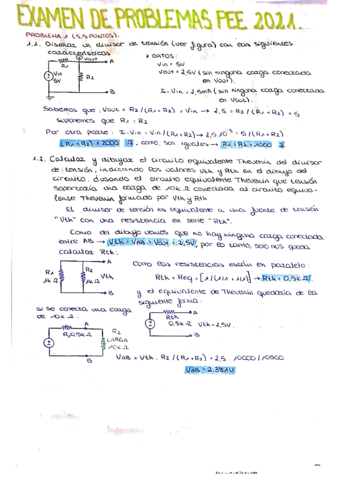 EXAMEN DE PROBLEMAS PEE 2021.
PROBLEMA 1 (5,5 PUNTOS):
1.1. Diseñar un divisor de tensión (ver figura) con las siguientes
características
* DATOS:
Vin = 5V
Vout = 2,5V (sin ninguna carga conectada
en Vout).
I-Vin = 2,5mA (sin ninguna carga conectada
en Vout).
R1 Vout A
Vin
5V
R2
B
Sabemos que: Vout = R2/(R1+R2) = Vin → 2,5 = R2/(R1+R2) = 5
suponemos que R1 = R2
Por otra parte: I-Vin = Vin/(R1+R2) → 2,5·10⁻³ = 5/(R1+R2)
(R1+R2) = 2000 Ω, como son iguales → R1 = R2 = 1000 Ω
1.2. Calcular y dibujar el circuito equivalente Thevenin del divisor
de tensión, indicando los valores Vth y Rth en el dibujo del
circuito. dibuando el circuito equivalente Thevenin que tensión
soportaría una carga de 10k Ω conectada al circuito equiva-
lente Thevenin formado por Vth y Rth
El divisor de tensión es equivalente a una fuente de tensión
"Vth" con una resistencia en serie "Rth".
Como del dibujo vemos que no hay ninguna carga conectada
entre AB → Vth = VAB = Vout = 2,5V, por lo tanto, solo nos queda
calcular Rth:
A
R1
1k Ω
R2
1k Ω
Vth
B
Como las resistencias están en paralelo
Rth = Req = [1/(1/1 + 1/1)] → Rth = 0,5k Ω
y el equivalente de Thevenin quedaría de la
siguiente forma:
A
Rth
0,5k Ω Vth = 2,5V.
B
si se conecta una carga
de 10k Ω:
A
R1 0,5k Ω
R2
CARGA
10k Ω
B
VAB = Vth · R2/(R1+R2) = 2,5 · 10000/10500
VAB = 2,381V